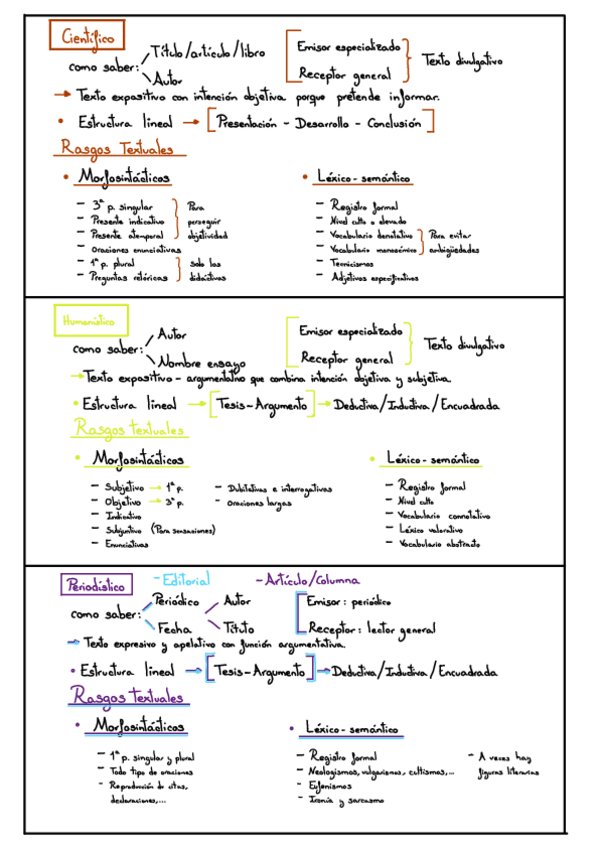 Científico
como saber: Título/artículo/libro
Autor
Emisor especializado
Receptor general
Texto divulgativo
→ Texto expositivo con intención objetiva porque pretende informar.
• Estructura lineal → [Presentación - Desarrollo - Conclusión]
Rasgos Textuales
• Morfosintácticos
- 3ª p. singular
- Presente indicativo
- Presente atemporal
Para
perseguir
objetividad
- Oraciones enunciativas
- 1ª p. plural
- Preguntas retóricas
solo los
didácticos
• Léxico-semántico
- Registro formal
- Nivel culto o elevado
- Vocabulario denotativo
- Vocabulario monosémico
Para evitar
ambigüedades
- Tecnicismos
- Adjetivos especificativos
Humanístico
como saber: Autor
Nombre ensayo
Emisor especializado
Receptor general
Texto divulgativo
→ Texto expositivo - argumentativo que combina intención objetiva y subjetiva.
• Estructura lineal → [Tesis-Argumento] → Deductiva/Inductiva/Encuadrada
Rasgos textuales
• Morfosintácticos
- Subjetivo → 1ª p.
- Objetivo → 3ª p.
- Indicativo
- Subjuntivo (Para sensaciones)
- Enunciativas
- Dubitativas e interrogativas
- Oraciones largas
• Léxico-semántico
- Registro formal
- Nivel culto
- Vocabulario connotativo
- Léxico valorativo
- Vocabulario abstracto
Periodístico
- Editorial
- Artículo/Columna
como saber: Periódico
Fecha
Autor
Título
Emisor: periódico
Receptor: lector general
→ Texto expresivo y apelativo con función argumentativa.
• Estructura lineal → [Tesis-Argumento] → Deductiva/Inductiva/Encuadrada
Rasgos textuales
• Morfosintácticos
- 1ª p. singular y plural
- Todo tipo de oraciones
- Reproducción de citas,
declaraciones,...
• Léxico-semántico
- Registro formal
- Neologismos, vulgarismos, cultismos,...
- Eufemismos
- Ironía y sarcasmo
- A veces hay
figuras literarias